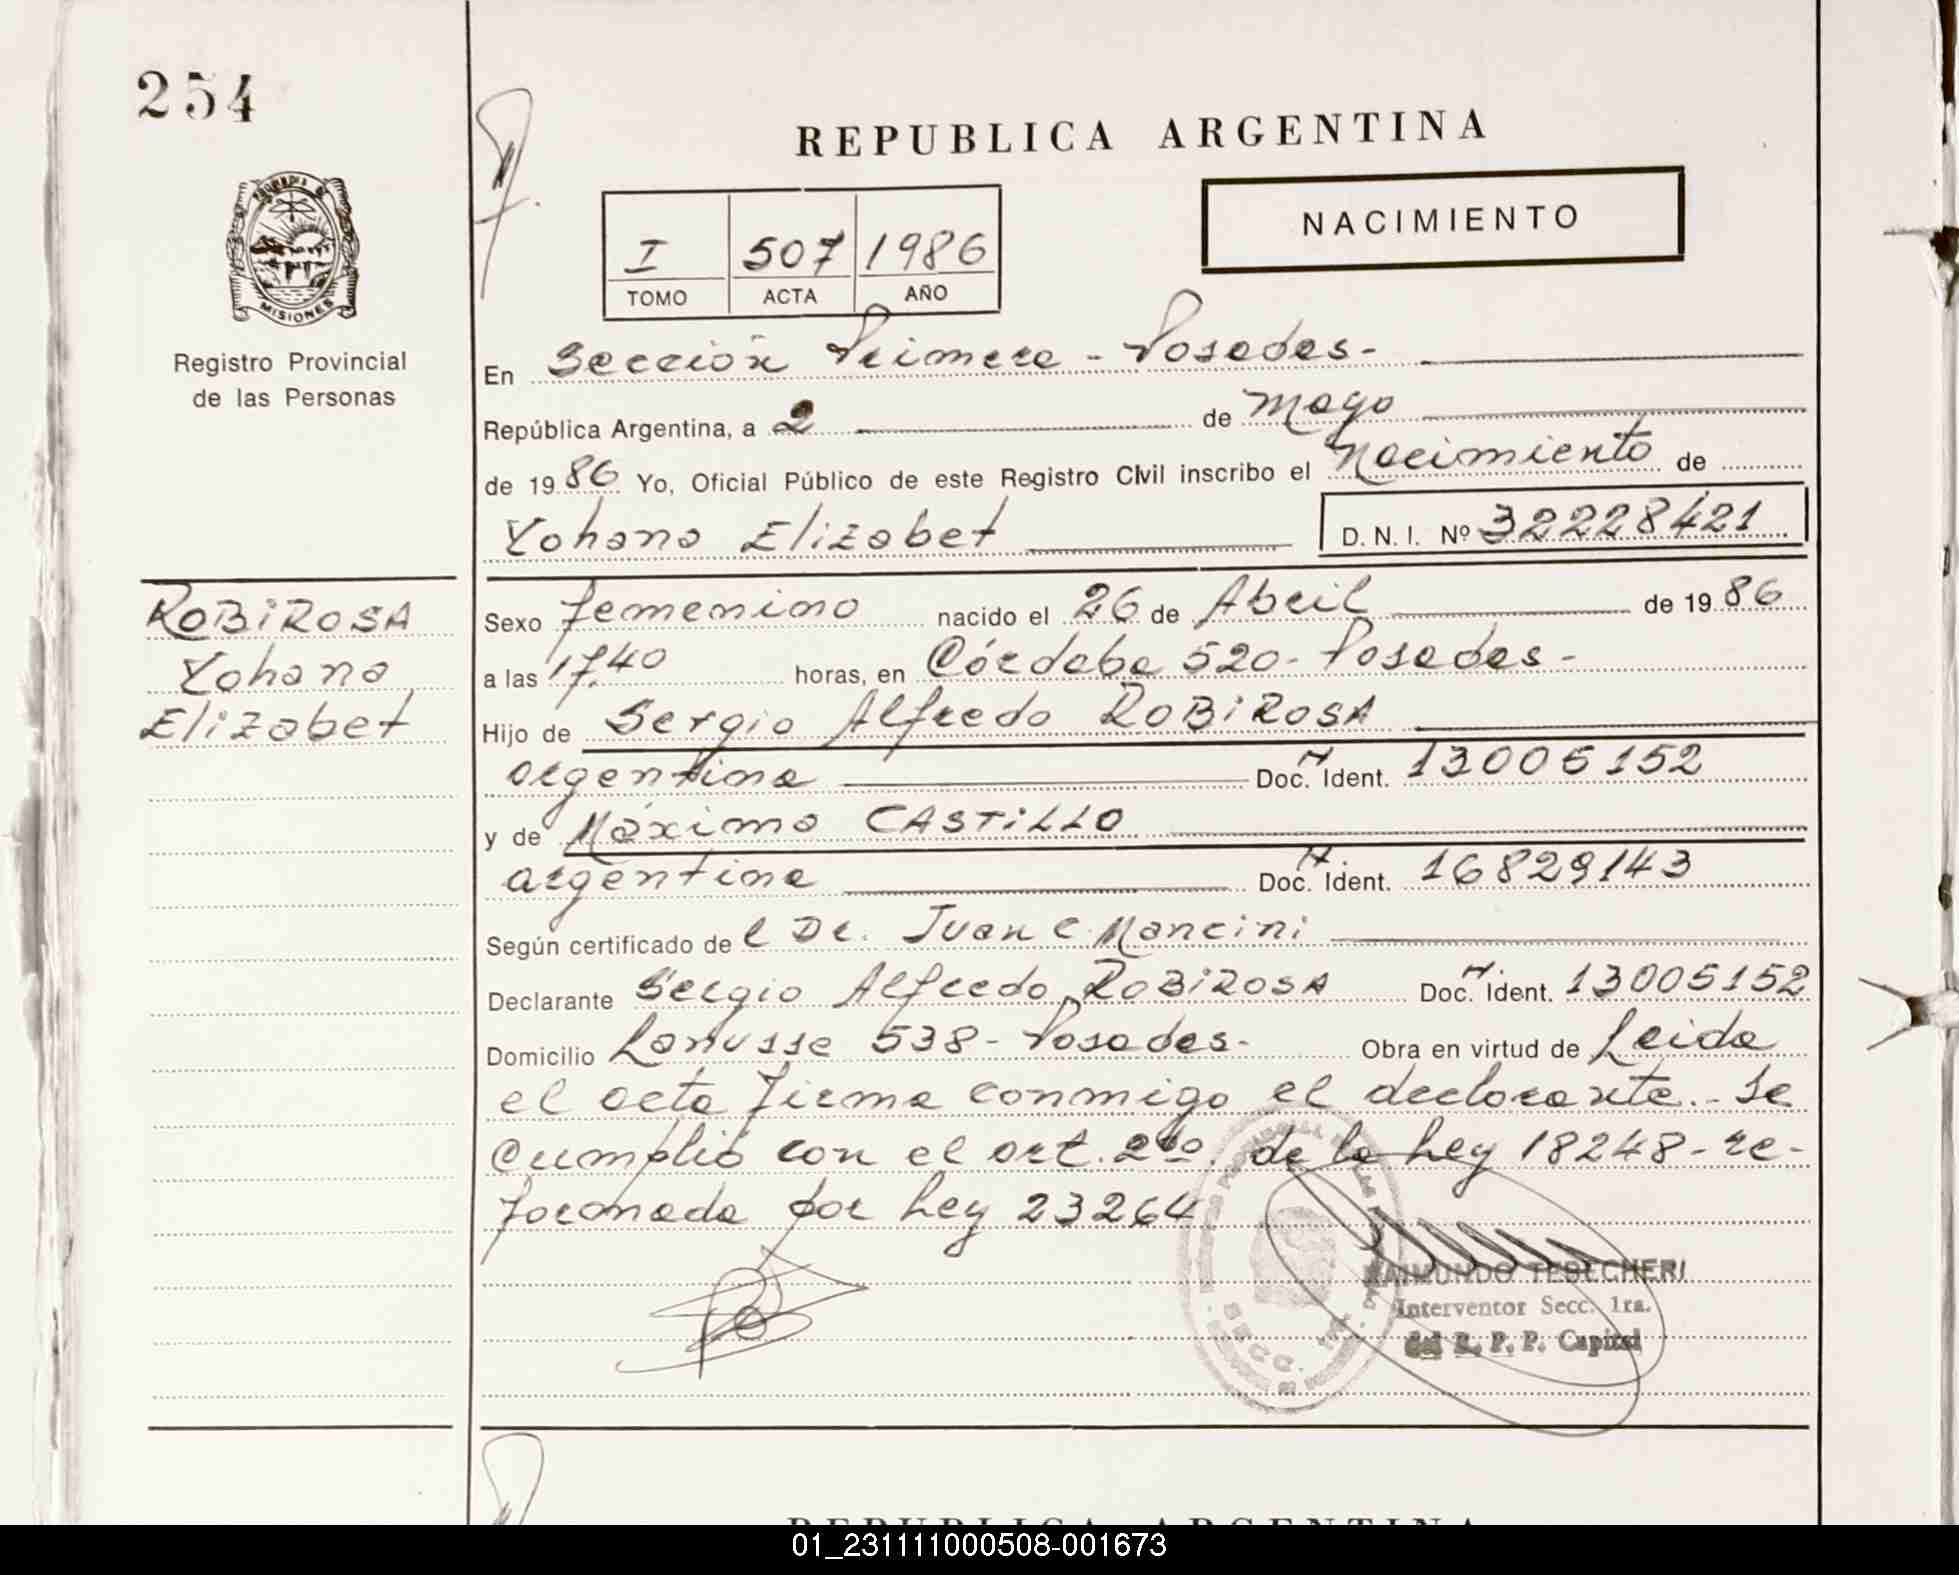 254
REPUBLICA ARGENTINA
NACIMIENTO
I 507 1986
TOMO ACTA AÑO
MISIONES
Registro Provincial
de las Personas
En Sección Primera - Posadas-
República Argentina, a 2 de Mayo
de 1986 Yo, Oficial Público de este Registro Civil inscribo el Nacimiento de
Yohana Elizabet D. N. I. Nº 32228421
ROBIROSA
Yohana
Elizabet
Sexo femenino nacido el 26 de Abril de 1986
a las 17,40 horas, en Córdoba 520- Posadas-
Hijo de Sergio Alfredo ROBIROSA
argentina Doc. Ident. 13005152
y de Máxima CASTILLO
argentina Doc. Ident. 16829143
Según certificado de l Dr. Juan C. Mancini
Declarante Sergio Alfredo ROBIROSA Doc. Ident. 13005152
Domicilio Lanusse 538- Posadas- Obra en virtud de Leida
el acta firma conmigo el declarante.- Se
cumplió con el art. 2do. de la Ley 18248- re-
formada por Ley 23264
SECC. 1ra
RAIMUNDO TEDECHERI
Interventor Secc. 1ra.
del R. P. P. Capital
REPUBLICA ARGENTINA
01_231111000508-001673